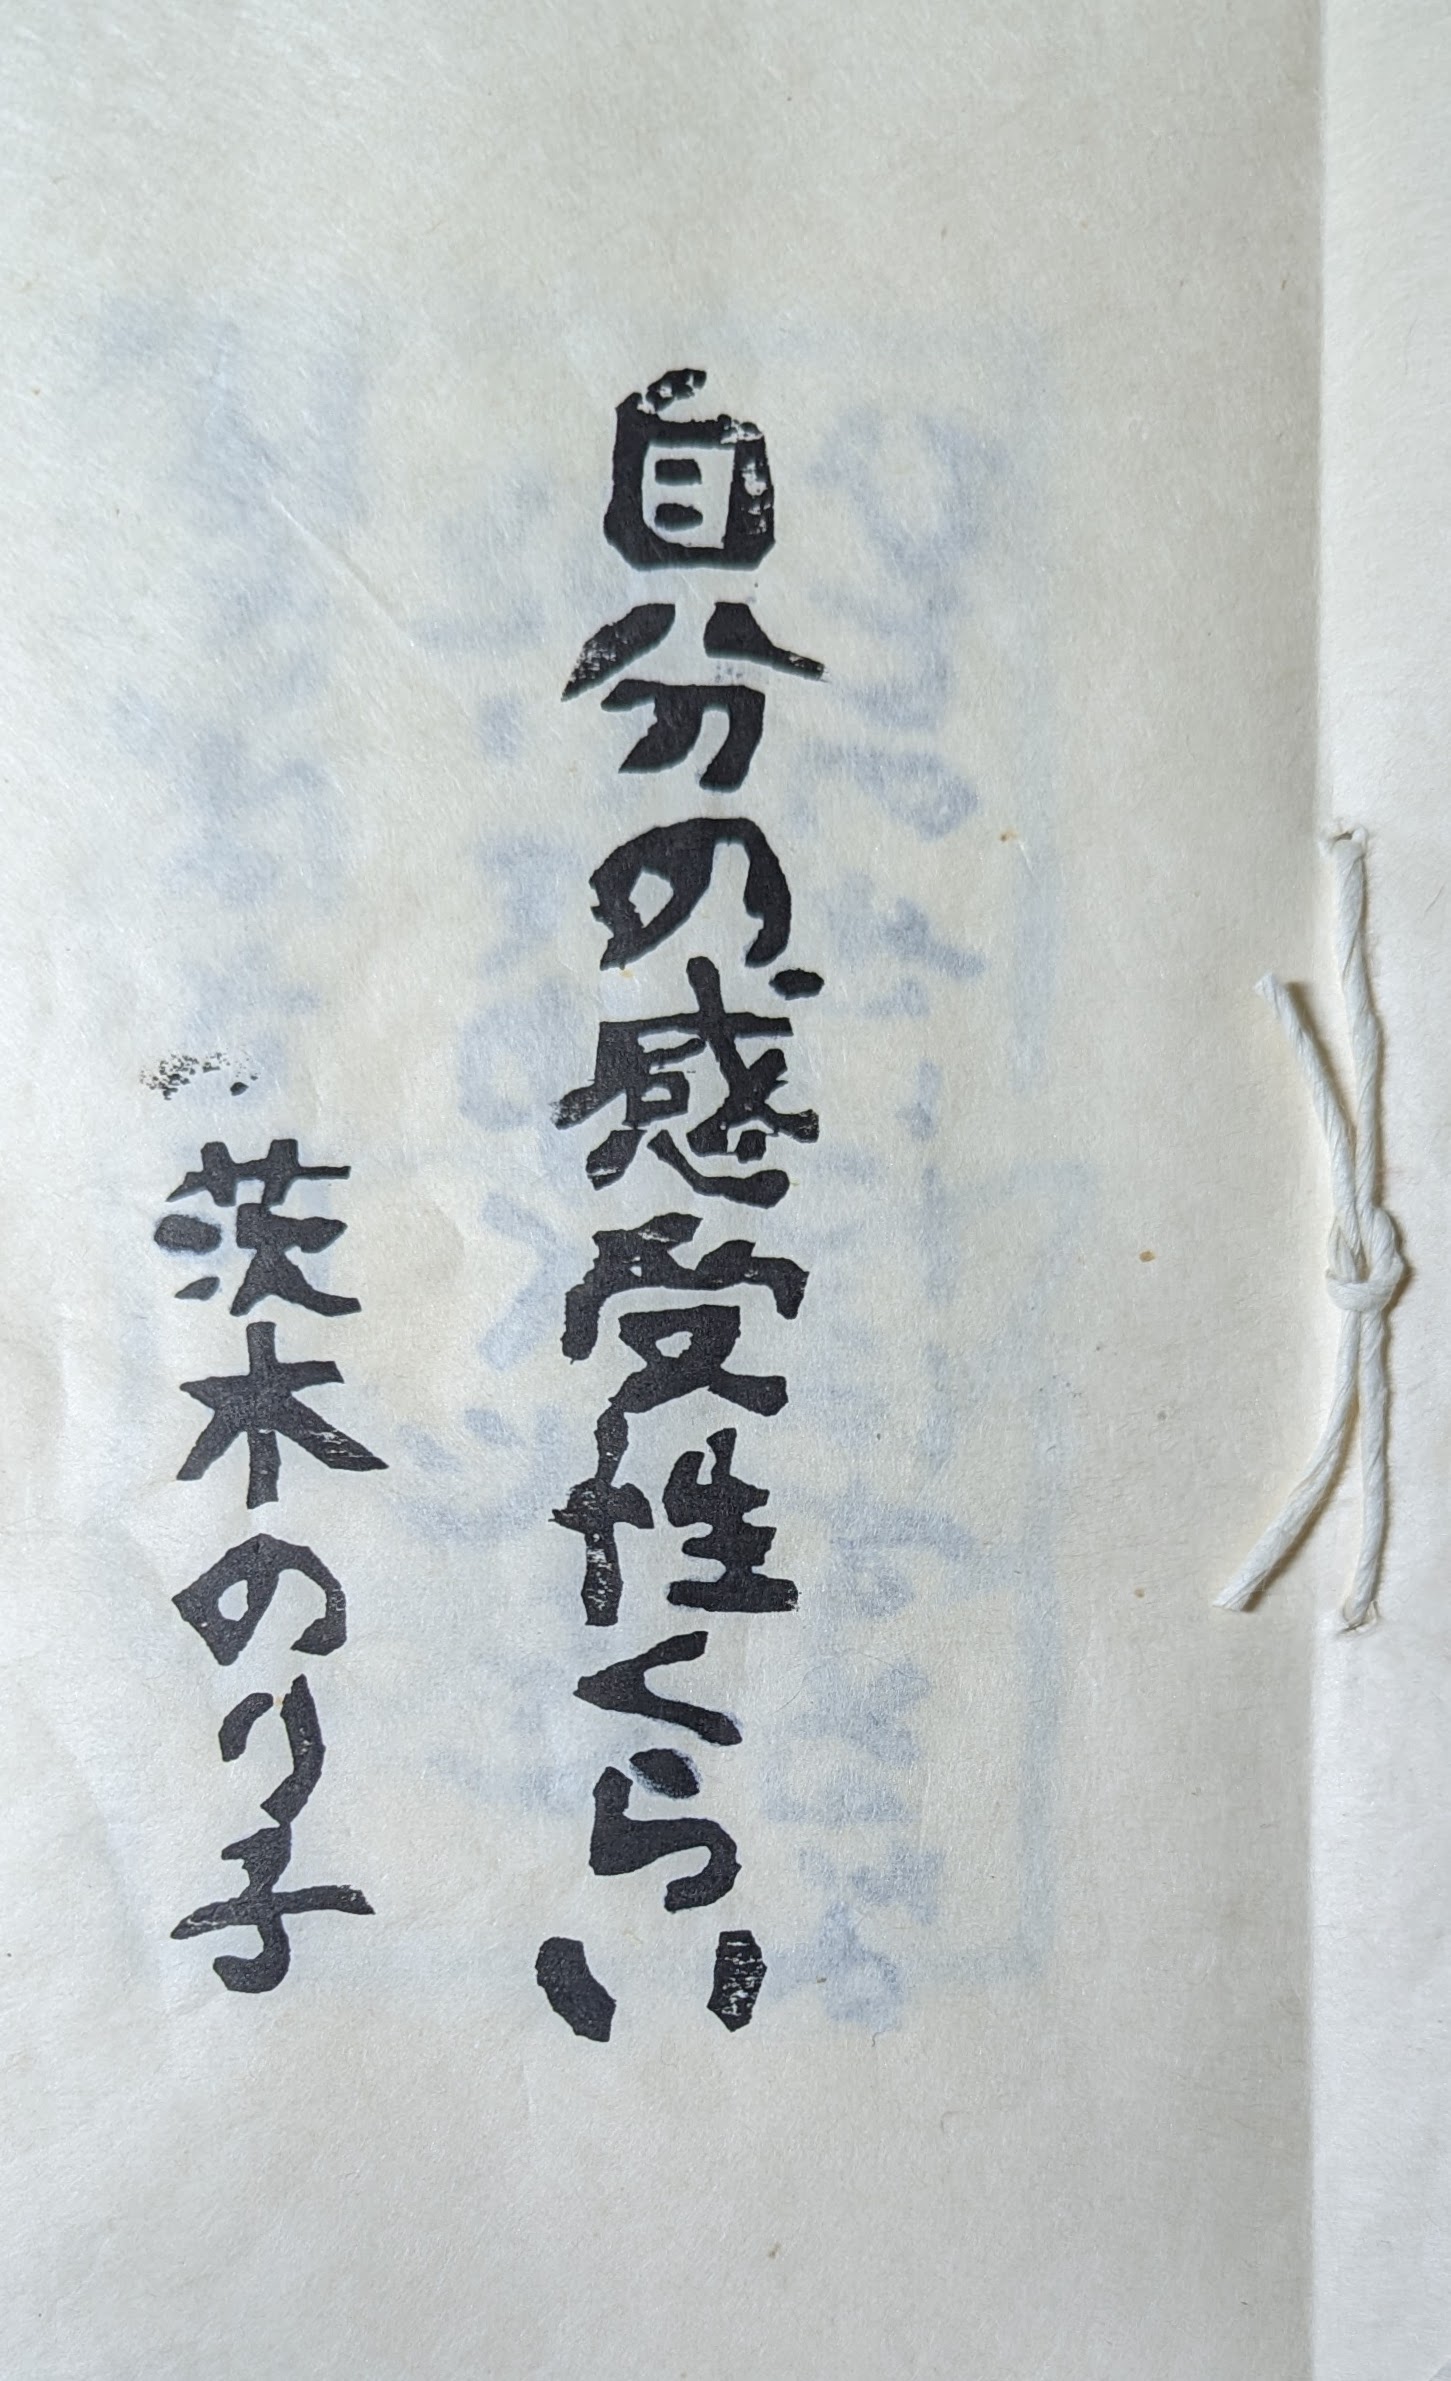 自分の感受性くらい
茨木のり子